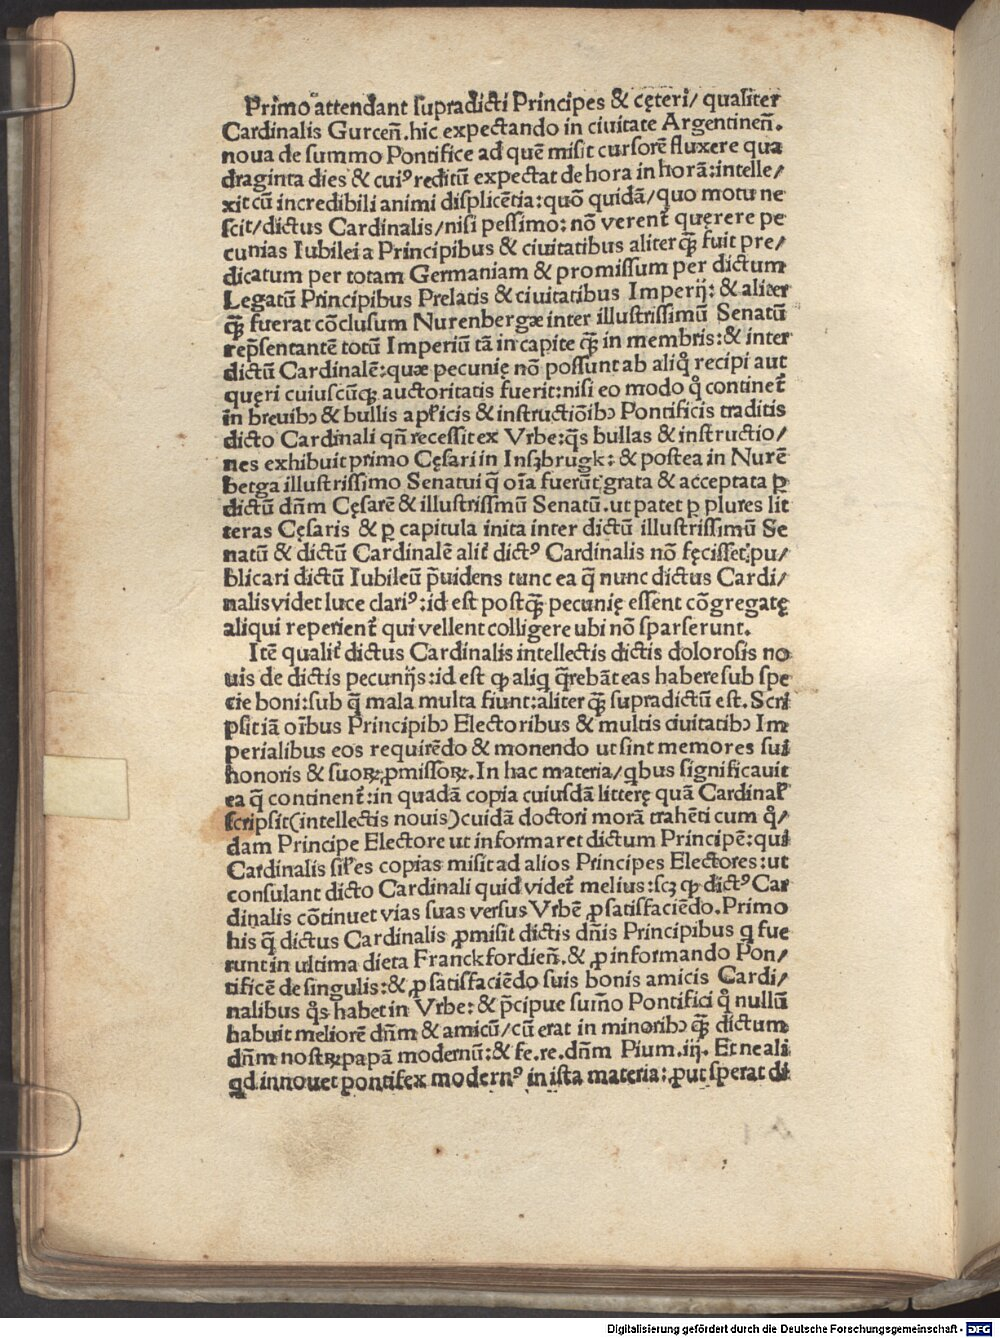 Primo attendant supradicti Principes & cęteri/ qualiter
Cardinalis Gurcen̄. hic expectando in ciuitate Argentinen̄.
noua de summo Pontifice ad quē misit cursorē fluxere qua
draginta dies & cuiꝰ reditū expectat de hora in horā: intelle/
xit cū incredibili animi displicētia: quō quidā/ quo motu ne
scit/ dictus Cardinalis/ nisi pessimo: nō verent᷑ quęrere pe
cunias Iubilei a Principibus & ciuitatibus aliter ꝙ̄ fuit pre/
dicatum per totam Germaniam & promissum per dictum
Legatū Principibus Prelatis & ciuitatibus Imperij: & aliter
ꝙ̄ fuerat cōclusum Nurenbergæ inter illustrissimū Senatū
rep̄sentantē totū Imperiū tā in capite ꝙ̄ in membris: & inter
dictū Cardinalē: quæ pecunię nō possunt ab aliqͦ recipi aut
quęri cuiuscūqꝫ auctoritatis fuerit: nisi eo modo qͦ continet᷑
in breuibꝫ & bullis apl̓icis & instructiōibꝫ Pontificis traditis
dicto Cardinali qn̄ recessit ex Vrbe: q̄s bullas & instructio/
nes exhibuit primo Cęsari in Insꝫbrugk: & postea in Nurē
berga illustrissimo Senatui q̄ oīa fuerūt grata & acceptata ꝑ
dictū dn̄m Cęsarē & illustrissimū Senatū. ut patet ꝑ plures lit
teras Cęsaris & ꝑ capitula inita inter dictū illustrissimū Se
natū & dictū Cardinalē alit᷑ dictꝰ Cardinalis nō fęcisset: pu/
blicari dictū Iubileū p̄uidens tunc ea q̄ nunc dictus Cardi/
nalis videt luce clariꝰ: id est postꝙ̄ pecunię essent cōgregatę
aliqui reperient᷑ qui vellent colligere ubi nō sparserunt.
Itē qualit᷑ dictus Cardinalis intellectis dictis dolorosis no
uis de dictis pecunijs: id est ꝙ aliq̇ q̄rebāt eas habere sub spe
cie boni: sub q̄ mala multa fiunt: aliter ꝙ̄ supradictū est. Scri
psit iā oībus Principibꝫ Electoribus & multis ciuitatibꝫ Im
perialibus eos requirēdo & monendo ut sint memores sui
honoris & suoꝝ ꝓmissoꝝ. In hac materia/ qͥbus significauit
ea q̄ continent᷑: in quadā copia cuiusdā litterę quā Cardinal̓
scripsit (intellectis nouis) cuidā doctori morā trahēti cum qͦ/
dam Principe Electore ut informaret dictum Principē: qui
Cardinalis sil̓es copias misit ad alios Principes Electores: ut
consulant dicto Cardinali quid videt᷑ melius: scꝫ ꝙ dictꝰ Car
dinalis cōtinuet vias suas versus Vrbē ꝓ satisfaciēdo. Primo
his q̄ dictus Cardinalis ꝓmisit dictis dn̄is Principibus q̇ fue
runt in ultima dieta Franckfordien̄. & ꝓ informando Pon/
tificē de singulis: & ꝓ satisfaciēdo suis bonis amicis Cardi/
nalibus qͦs habet in Vrbe: & p̄cipue sum̄o Pontifici qͦ nullū
habuit meliorē dn̄m & amicū/ cū erat in minoribꝫ ꝙ̄ dictum
dn̄m nostꝝ papā modernū: & fe. re. dn̄m Pium. iij. Et ne ali
qͥd innouet pontifex modernꝰ in ista materia: ꝓut sperat di
Digitalisierung gefördert durch die Deutsche Forschungsgemeinschaft - DFG